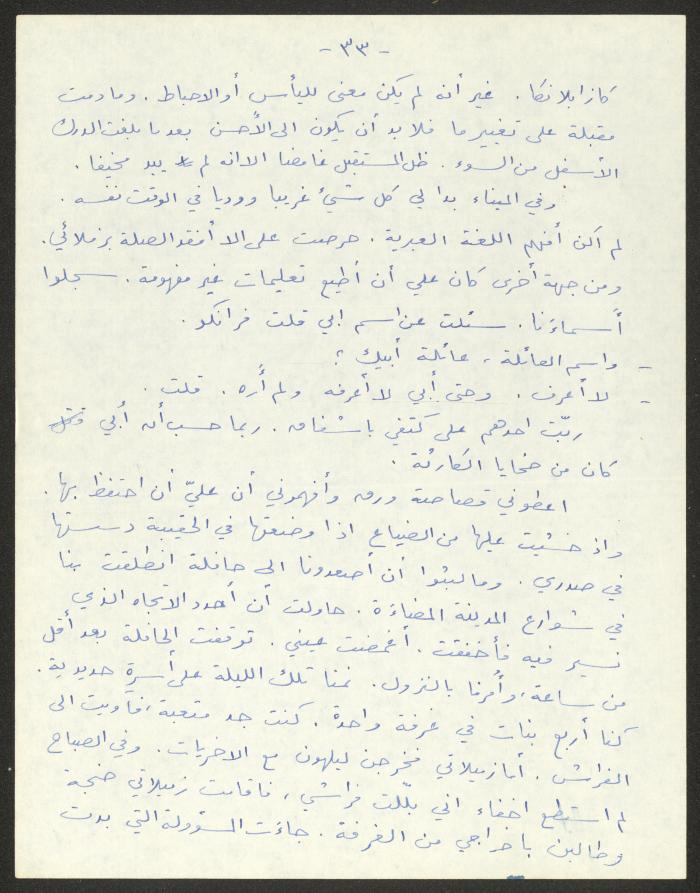 - ٣٣ -
كازابلانكا . غير أنه لم يكن معنى لليأس أو الاحباط . وما دمت
مقبلة على تغيير ما فلا بد أن يكون الى الأحسن بعد ما بلغت الدرك
الأسفل من السوء . ظل المستقبل غامضا الا انه لم يبد مخيفا .
وفي الميناء بدا لي كل شيء غريبا ووديا في الوقت نفسه .
لم اكن أفهم اللغة العبرية . حرصت على الا أفقد الصلة بزملائي .
ومن جهة أخرى كان علي أن أطيع تعليمات غير مفهومة . سجلوا
أسماءنا . سئلت عن اسم ابي قلت فرانكو .
- واسم العائلة ، عائلة أبيك ؟
- لا أعرف . وحتى أبي لا أعرفه ولم أره . قلت .
ربّت احدهم على كتفي باشفاق . ربما حسب أن أبي
كان من ضحايا الكارثة .
اعطوني قصاصة ورق وأفهموني أن عليّ أن احتفظ بها .
واذ خشيت عليها من الضياع اذا وضعتها في الحقيبة دسستها
في صدري . وما لبثوا أن أصعدونا الى حافلة انطلقت بنا
في شوارع المدينة المضاءة . حاولت أن أحدد الاتجاه الذي
نسير فيه فأخفقت . أغمضت عيني . توقفت الحافلة بعد أقل
من ساعة ، وأُمرنا بالنزول . نمنا تلك الليلة على أسرةٍ حديدية .
كنا أربع بنات في غرفة واحدة . كنت جد متعبة ، فأويت الى
الفراش . أما زميلاتي فخرجن ليلهون مع الاخريات . وفي الصباح
لم استطع اخفاء اني بلّلت فراشي ، فأقامت زميلاتي ضجة
وطالبن باخراجي من الغرفة . جاءت المسؤولة التي بدت